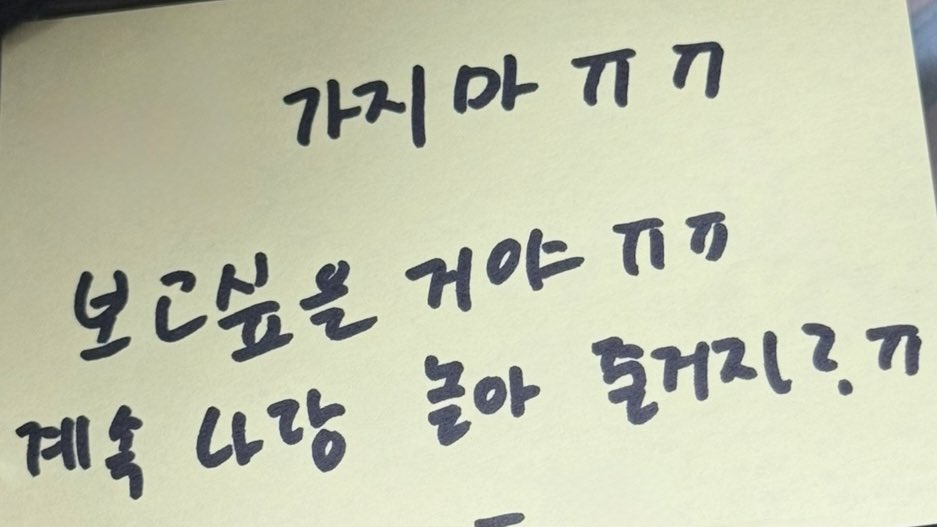 가지마 ㅠㅠ
보고싶을 거야 ㅠㅠ
계속 나랑 놀아 줄거지?ㅠ